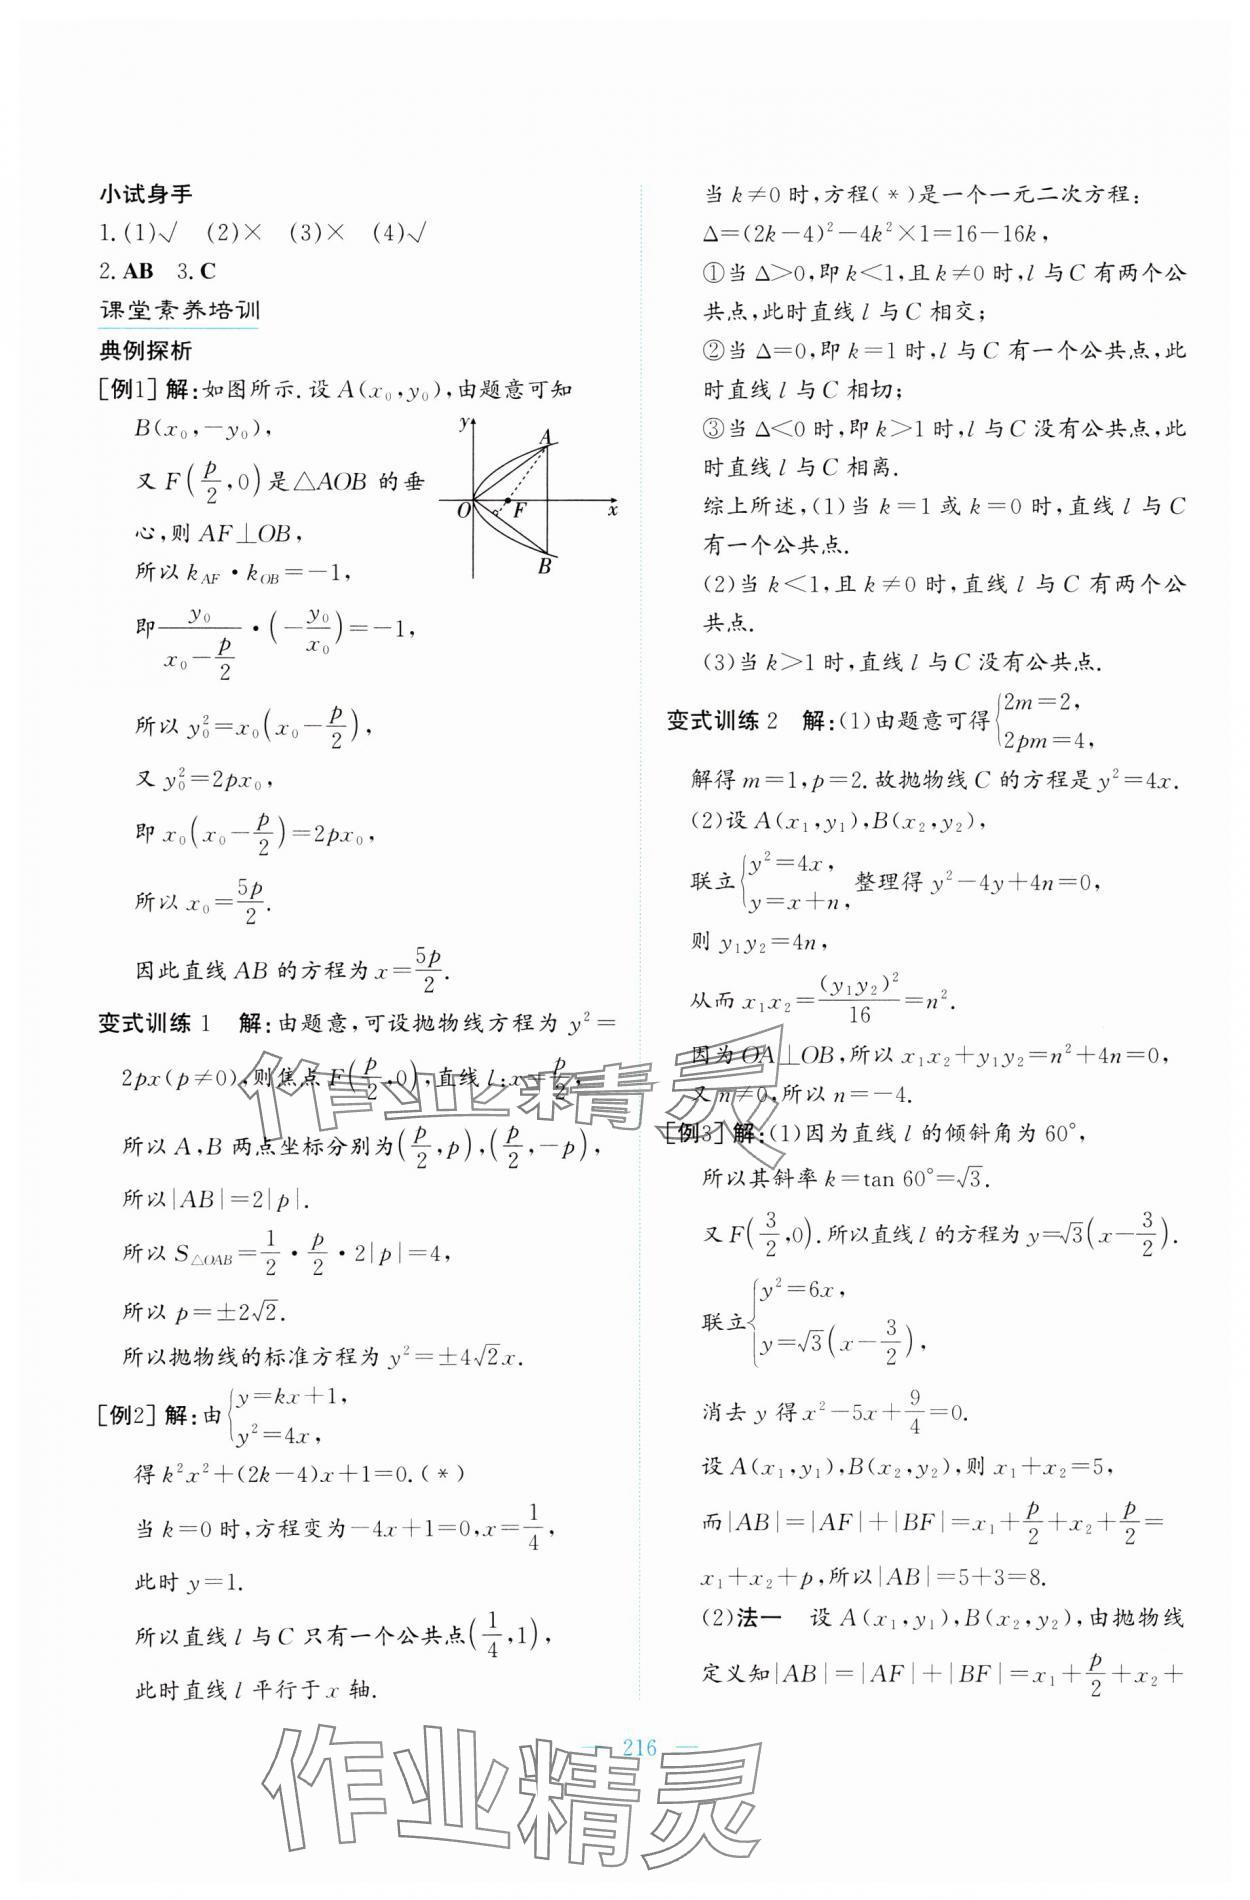 小试身手
1.(1)√ (2)× (3)× (4)√
2.AB 3.C
课堂素养培训
典例探析
[例1]解:如图所示.设A(x₀,y₀),由题意可知
B(x₀,-y₀),
又F(p/2,0)是△AOB的垂
心,则AF⊥OB,
所以k_AF·k_OB=-1,
即y₀/(x₀-p/2)·(-y₀/x₀)=-1,
所以y₀²=x₀(x₀-p/2),
又y₀²=2px₀,
即x₀(x₀-p/2)=2px₀,
所以x₀=5p/2.
因此直线AB的方程为x=5p/2.
y
A
O
F
x
B
变式训练1 解:由题意,可设抛物线方程为y²=
2px(p≠0),则焦点F(p/2,0),直线l:x=p/2,
所以A,B两点坐标分别为(p/2,p),(p/2,-p),
所以|AB|=2|p|.
所以S_△OAB=1/2·p/2·2|p|=4,
所以p=±2√2.
所以抛物线的标准方程为y²=±4√2x.
[例2]解:由{y=kx+1,
y²=4x,
得k²x²+(2k-4)x+1=0.(*)
当k=0时,方程变为-4x+1=0,x=1/4,
此时y=1.
所以直线l与C只有一个公共点(1/4,1),
此时直线l平行于x轴.
当k≠0时,方程(*)是一个一元二次方程:
Δ=(2k-4)²-4k²×1=16-16k,
①当Δ>0,即k<1,且k≠0时,l与C有两个公
共点,此时直线l与C相交;
②当Δ=0,即k=1时,l与C有一个公共点,此
时直线l与C相切;
③当Δ<0时,即k>1时,l与C没有公共点,此
时直线l与C相离.
综上所述,(1)当k=1或k=0时,直线l与C
有一个公共点.
(2)当k<1,且k≠0时,直线l与C有两个公
共点.
(3)当k>1时,直线l与C没有公共点.
变式训练2 解:(1)由题意可得{2m=2,
2pm=4,
解得m=1,p=2.故抛物线C的方程是y²=4x.
(2)设A(x₁,y₁),B(x₂,y₂),
联立{y²=4x,
y=x+n, 整理得y²-4y+4n=0,
则y₁y₂=4n,
从而x₁x₂=(y₁y₂)²/16=n².
因为OA⊥OB,所以x₁x₂+y₁y₂=n²+4n=0,
又n≠0,所以n=-4.
[例3]解:(1)因为直线l的倾斜角为60°,
所以其斜率k=tan 60°=√3.
又F(3/2,0).所以直线l的方程为y=√3(x-3/2).
联立{y²=6x,
y=√3(x-3/2),
消去y得x²-5x+9/4=0.
设A(x₁,y₁),B(x₂,y₂),则x₁+x₂=5,
而|AB|=|AF|+|BF|=x₁+p/2+x₂+p/2=
x₁+x₂+p,所以|AB|=5+3=8.
(2)法一 设A(x₁,y₁),B(x₂,y₂),由抛物线
定义知|AB|=|AF|+|BF|=x₁+p/2+x₂+
216
作业精灵
作业精灵